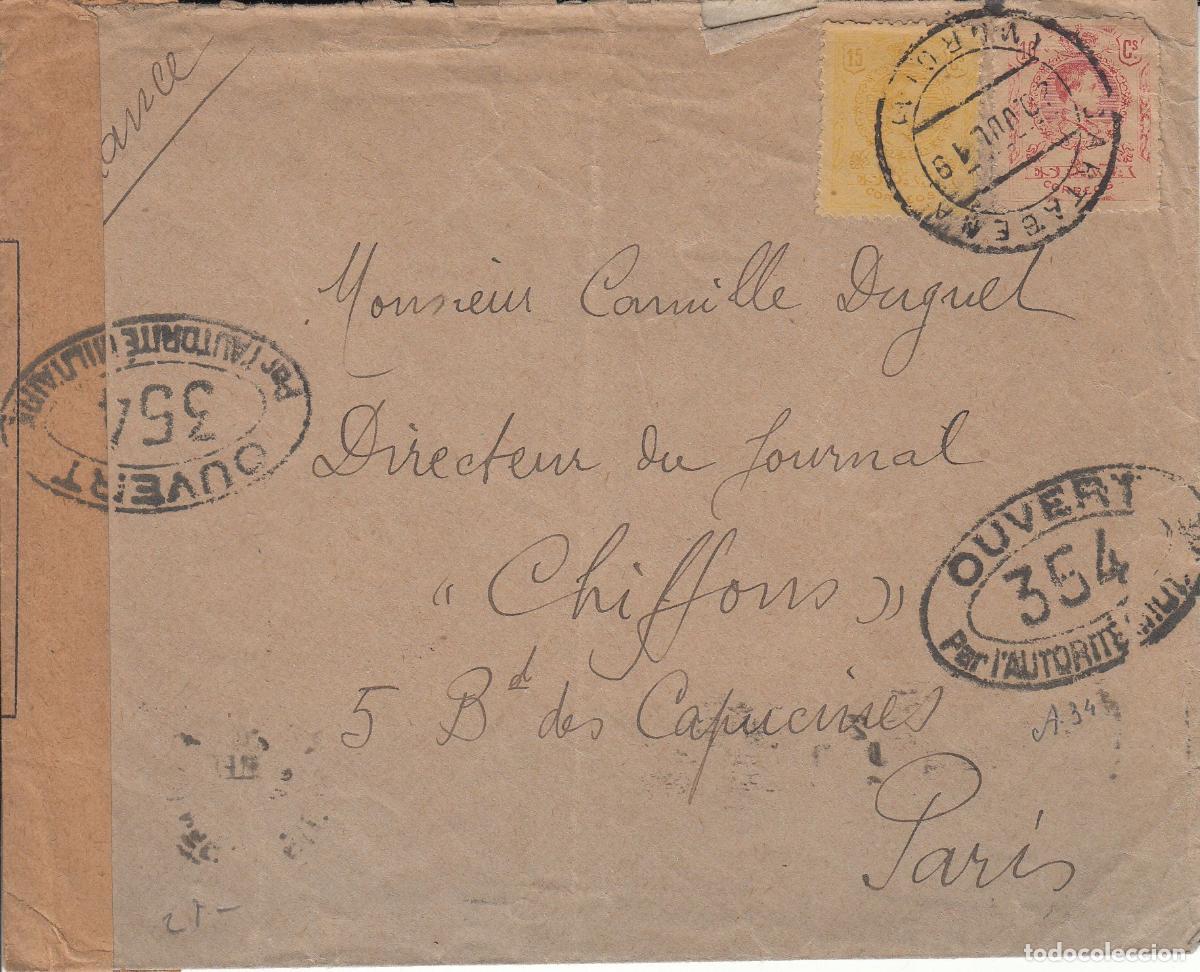 15
10 Cs
CORREOS
CARTAGENA
(MURCIA)
JUL 19
Monsieur Camille Duguet
Directeur du Journal
« Chiffons »
5 Bd des Capucines
Paris
OUVERT
354
Par l'AUTORITÉ MILITAIRE
OUVERT
354
Par l'AUTORITÉ
A.34
todocoleccion